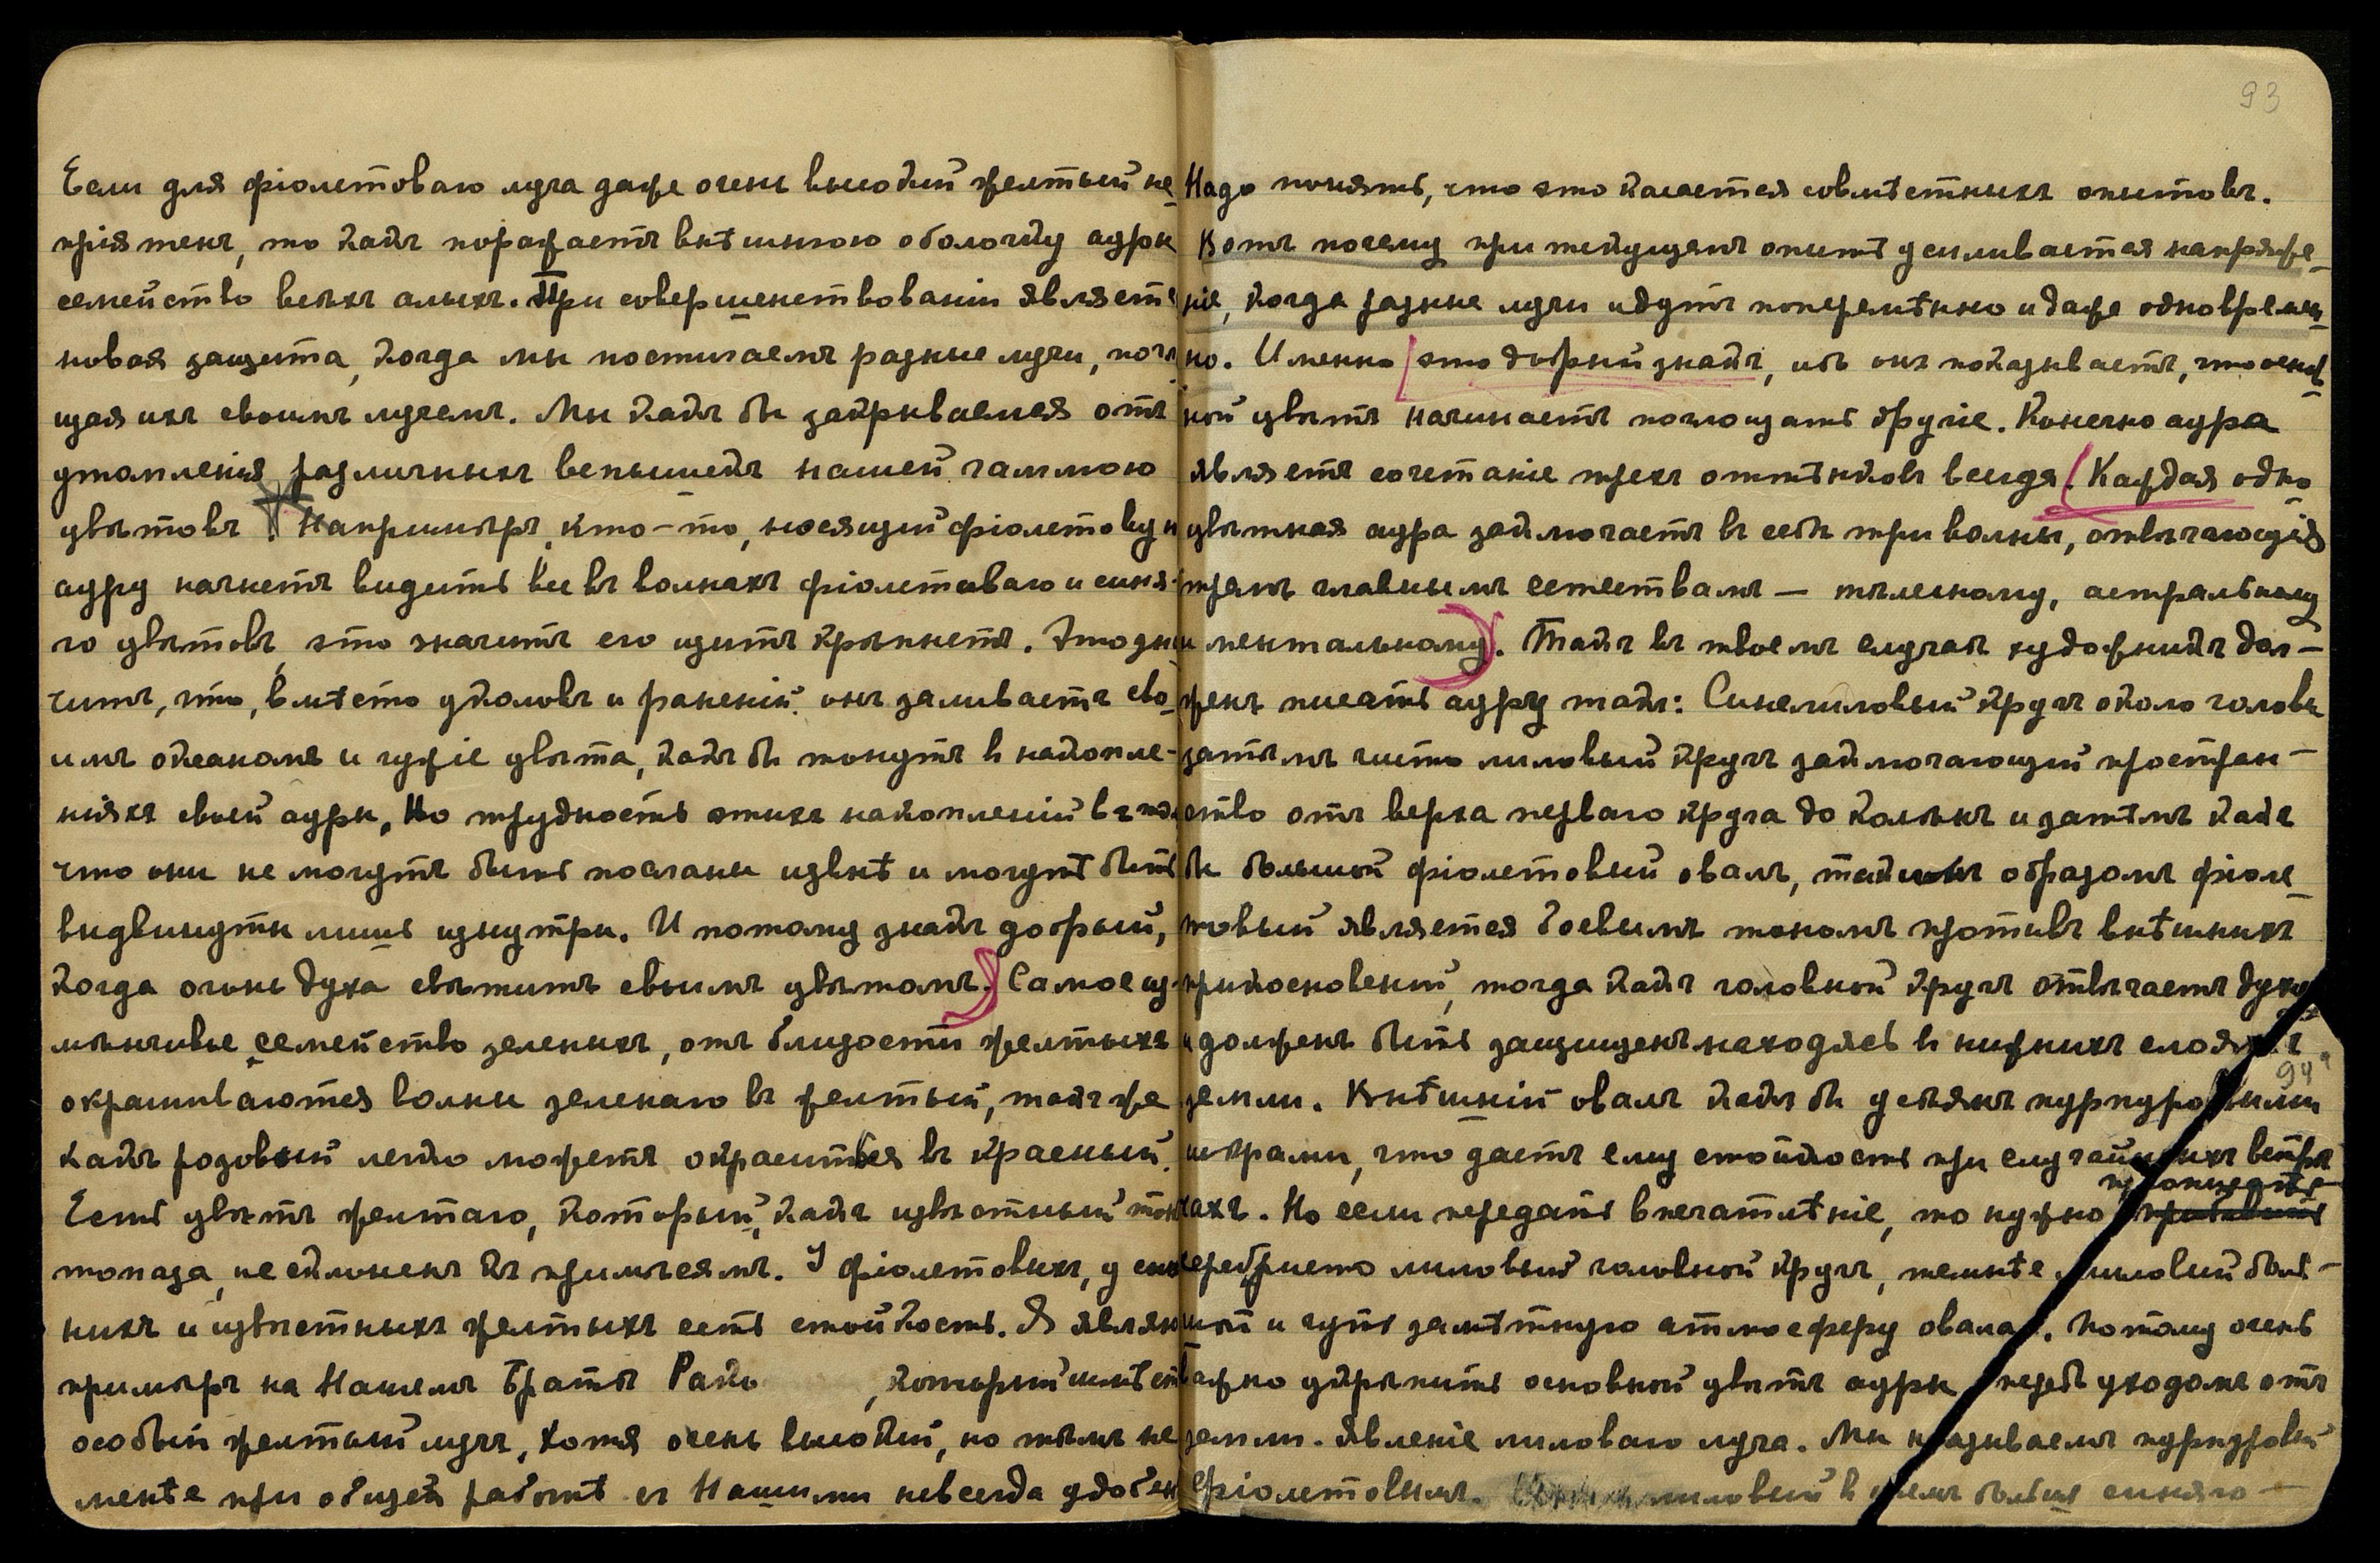 Если для фіолетоваго луча даже очень высокій желтый не
пріятенъ, то какъ поражаетъ внѣшнюю оболочку ауры
семейство всѣхъ алыхъ. При совершенствованіи является
новая защита, когда мы постигаемъ разные лучи, погло
щая ихъ своимъ лучемъ. Мы какъ бы закрываемся отъ
утомленія различныхъ вспышекъ нашей гаммою
цвѣтовъ. Напримѣръ, кто-то, носящий фіолетовую
ауру начнетъ видѣть все въ волнахъ фіолетоваго и сине-
го цвѣтовъ, это значитъ его щитъ крѣпнетъ. Это зна
читъ, что, вмѣсто уколовъ и раненій, онъ заливаетъ сво-
имъ океаномъ и чужіе цвѣта, какъ бы тонутъ в накопле-
ніяхъ своей ауры. Но трудность этихъ накопленій въ томъ
что они не могутъ быть посланы извнѣ и могутъ быть
выдвинуты лишь изнутри. И потому знакъ добрый,
когда огонь духа свѣтитъ своимъ цвѣтомъ. Самое из-
мѣнчивое семейство зеленыхъ, отъ близости желтыхъ
окрашиваются волны зеленаго въ желтый, такъ же
какъ розовый легко можетъ окраситься въ красный.
Есть цвѣтъ желтаго, который, какъ цвѣтный тонъ
топаза, не склоненъ къ примѣсямъ. У фіолетовыхъ, у си
нихъ и цвѣтныхъ желтыхъ есть стойкость. Я являю
примѣръ на Нашемъ Братѣ Рако , который имѣетъ
особый желтый лучъ, хотя очень высокій, но тѣмъ не
менѣе при общей работѣ съ Нашими не всегда удобен
93
Надо понять, что это касается совмѣстныхъ опытовъ.
Вотъ почему при текущемъ опытѣ усиливается напряже-
ніе, когда разные лучи идутъ поперемѣнно и даже одновремен-
но. Именно это добрый знакъ, ибо онъ показываетъ, что основ
ной цвѣтъ начинаетъ поглощать другіе. Конечно аура
являетъ сочетаніе трехъ оттѣнковъ всегда. Каждая одно
цвѣтная аура заключаетъ въ себѣ три волны, отвѣчающія
тремъ главнымъ естествамъ — тѣлесному, астральному
и ментальному. Такъ въ твоемъ случаѣ художникъ дол-
женъ писать ауру такъ: Синелиловый кругъ около головы
затѣмъ чисто лиловый кругъ заключающій простран-
ство отъ верха перваго круга до колѣнъ и затѣмъ какъ
бы большой фіолетовый овалъ, такимъ образомъ фіоле-
товый является боевымъ тономъ противъ внѣшнихъ
прикосновеній, тогда какъ головной кругъ отвѣчаетъ духу
и долженъ быть защищенъ находясь в нижнихъ слояхъ
94
земли. Внѣшній овалъ какъ бы усѣянъ пурпуровыми
искрами, что даетъ ему стойкость при случайныхъ встрѣ
чахъ. Но если передать впечатлѣніе, то нужно
серебристо лиловый головной кругъ, темнѣе лиловый боль-
шой и чуть замѣтную атмосферу овала. Потому очень
важно укрѣпить основной цвѣтъ ауры предъ уходомъ отъ
земли. Явленіе лиловаго луча. Мы называемъ пурпуровый
фіолетовымъ. лиловый в немъ больше синяго —